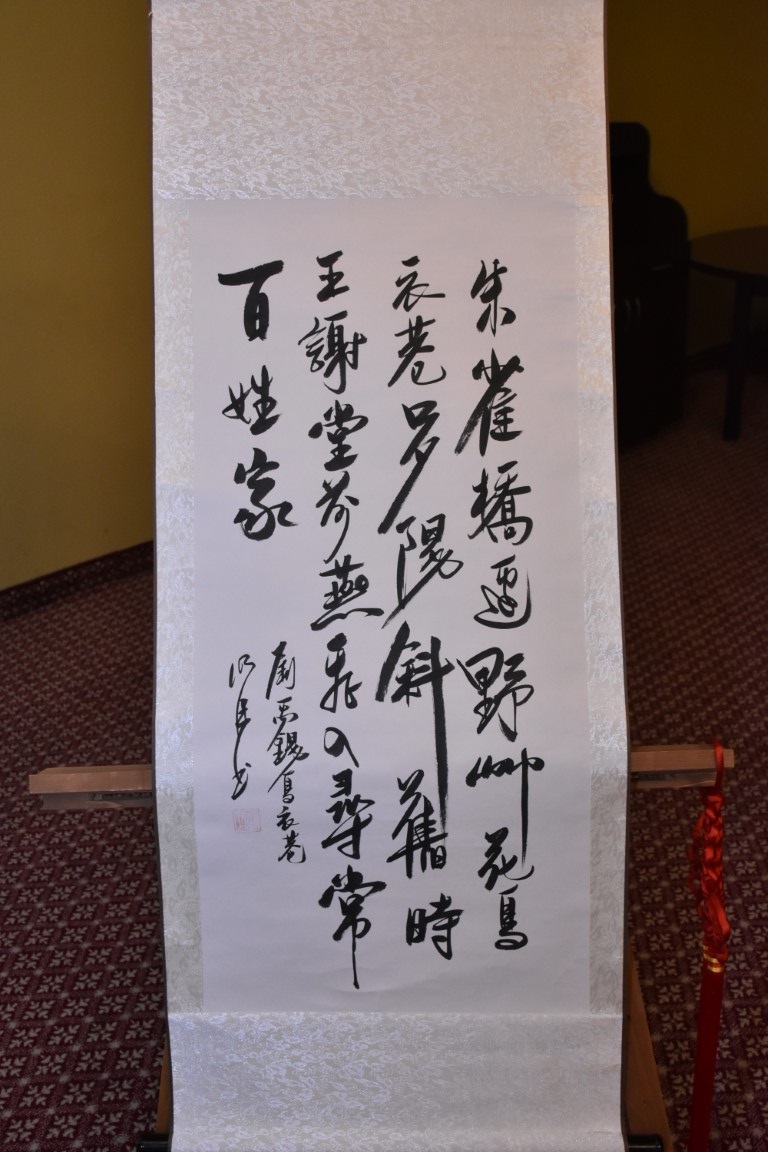 朱雀橋邊野艸花烏
衣巷口夕陽斜舊時
王謝堂前燕飛入尋常
百姓家
劉禹錫烏衣巷
书